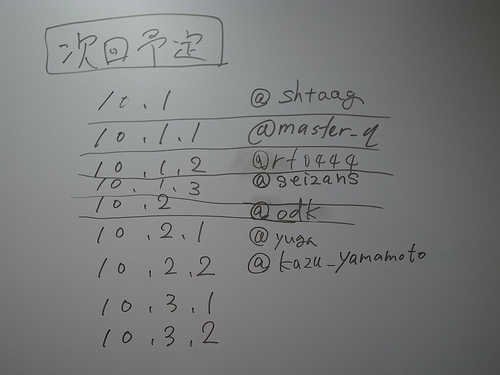 次回予定
10.1 @shtaag
10.1.1 @master_q
10.1.2 @rf0444
10.1.3 @seizans
10.2 @odk
10.2.1 @yuga
10.2.2 @kazu_yamamoto
10.3.1
10.3.2